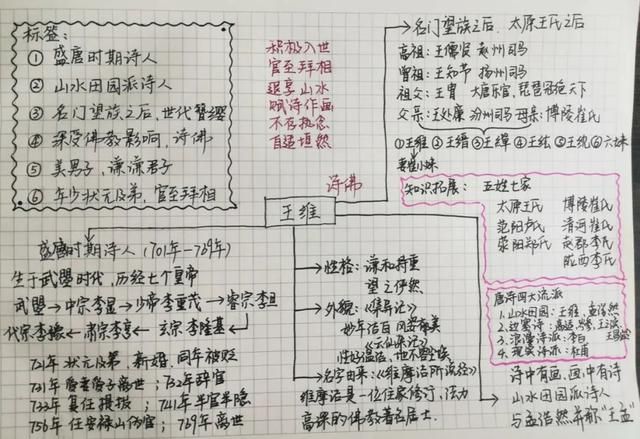 标签：
① 盛唐时期诗人
② 山水田园派诗人
③ 名门望族之后，世代簪缨
④ 深受佛教影响，诗佛
⑤ 美男子，谦谦君子
⑥ 年少状元及第，官至拜相
积极入世
官至拜相
退享山水
赋诗作画
不存执念
自适坦然
诗佛
王维
名门望族之后，太原王氏之后
高祖：王儒贤 赵州司马
曾祖：王知节 扬州司马
祖父：王胄 大唐乐官，琵琶冠绝天下
父亲：王处廉 汾州司马 母亲：博陵崔氏
①王维 ②王缙 ③王繟 ④王纮 ⑤王紞 ⑥六妹
妻崔小妹
知识拓展： 五姓七家
太原王氏 博陵崔氏
范阳卢氏 清河崔氏
荥阳郑氏 赵郡李氏
陇西李氏
唐诗四大流派
1. 山水田园：王维，孟浩然
2. 边塞诗：高适，岑参，王昌龄
3. 浪漫诗派：李白
4. 现实诗派：杜甫
诗中有画，画中有诗
山水田园派诗人
与孟浩然并称"王孟"
盛唐时期诗人（701年-769年）
生于武曌时代，历经七个皇帝
武曌→中宗李显→少帝李重茂→睿宗李旦
代宗李豫←肃宗李亨←玄宗李隆基←
721年 状元及第，新婚，同年被贬
731年 爱妻爱子离世；732年辞官
733年 复任提拔；741年半官半隐
756年 任安禄山伪官；769年离世
性格：谦和持重
望之俨然
外貌：《集异记》
妙年洁白 风姿郁美
《云仙杂记》
性好温洁，地不容尘埃
名字由来：《维摩诘所说经》
维摩诘是一位住家修行，法力
高深的佛教著名居士。